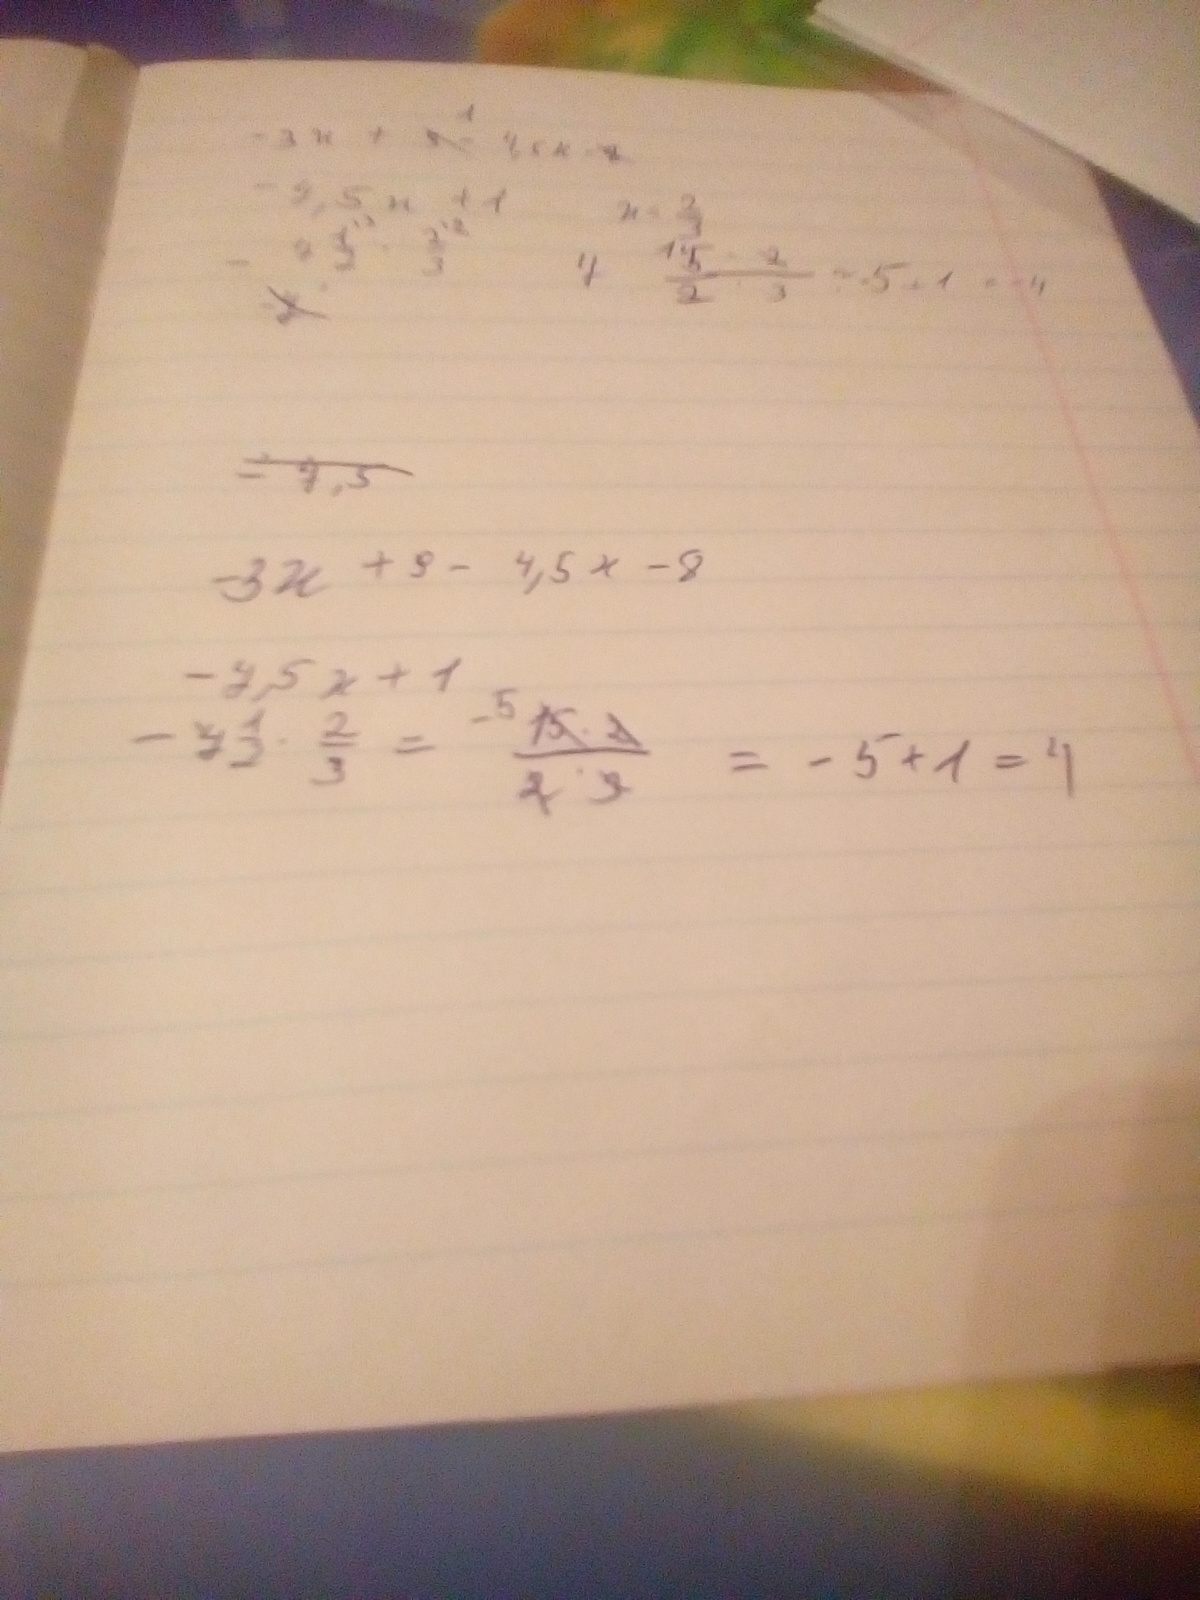 -3x + 9 - 4,5x - 8
-7,5x + 1 x = 2/3
- 7 1/2 · 2/3 15 · 2 / 2 · 3 = -5 + 1 = -4
= 7,5
-3x + 9 - 4,5x - 8
-7,5x + 1
-7 1/2 · 2/3 = -5 15 · 2 / 2 · 3 = -5 + 1 = 4